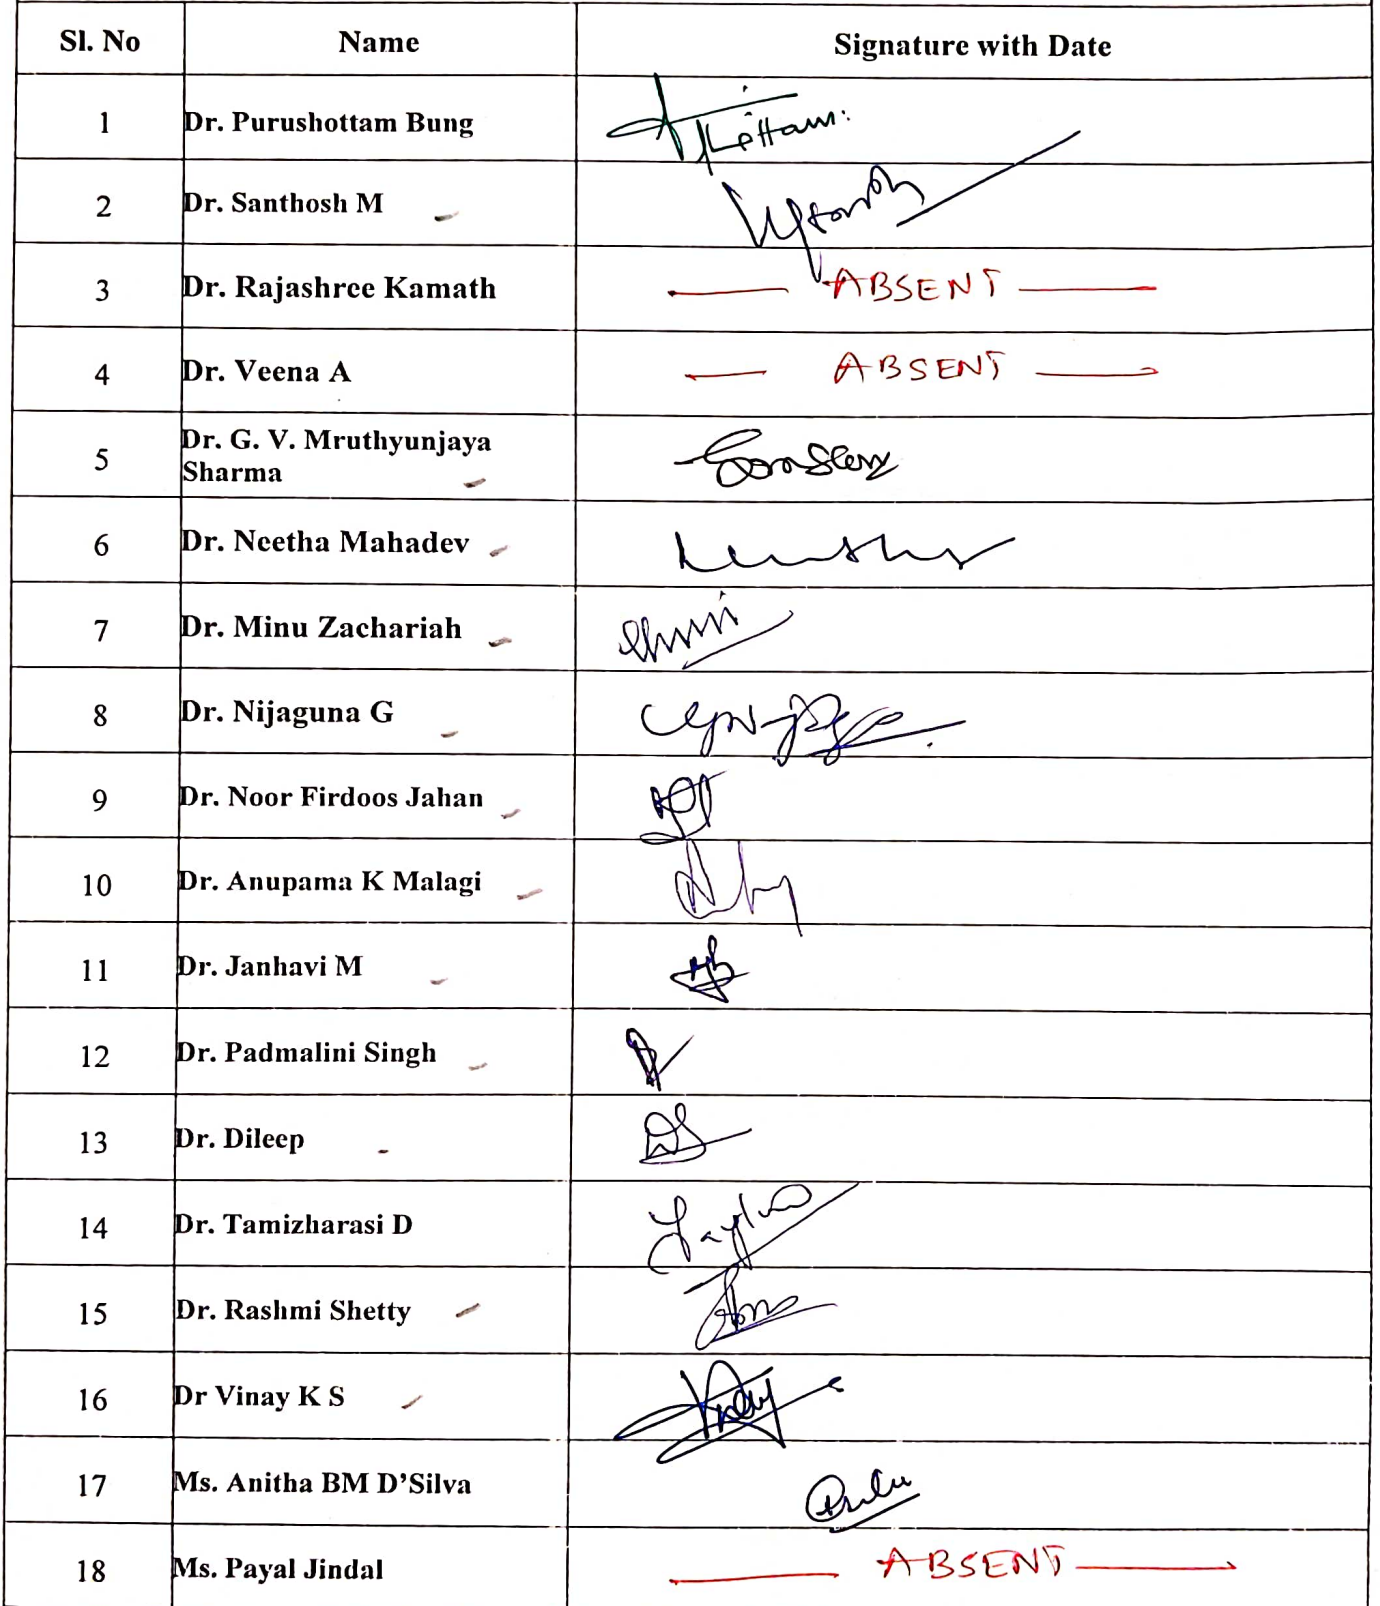 Sl. No Name Signature with Date
1 Dr. Purushottam Bung
2 Dr. Santhosh M
3 Dr. Rajashree Kamath ABSENT
4 Dr. Veena A ABSENT
5 Dr. G. V. Mruthyunjaya
Sharma
6 Dr. Neetha Mahadev
7 Dr. Minu Zachariah
8 Dr. Nijaguna G
9 Dr. Noor Firdoos Jahan
10 Dr. Anupama K Malagi
11 Dr. Janhavi M
12 Dr. Padmalini Singh
13 Dr. Dileep
14 Dr. Tamizharasi D
15 Dr. Rashmi Shetty
16 Dr Vinay K S
17 Ms. Anitha BM D'Silva
18 Ms. Payal Jindal ABSENT